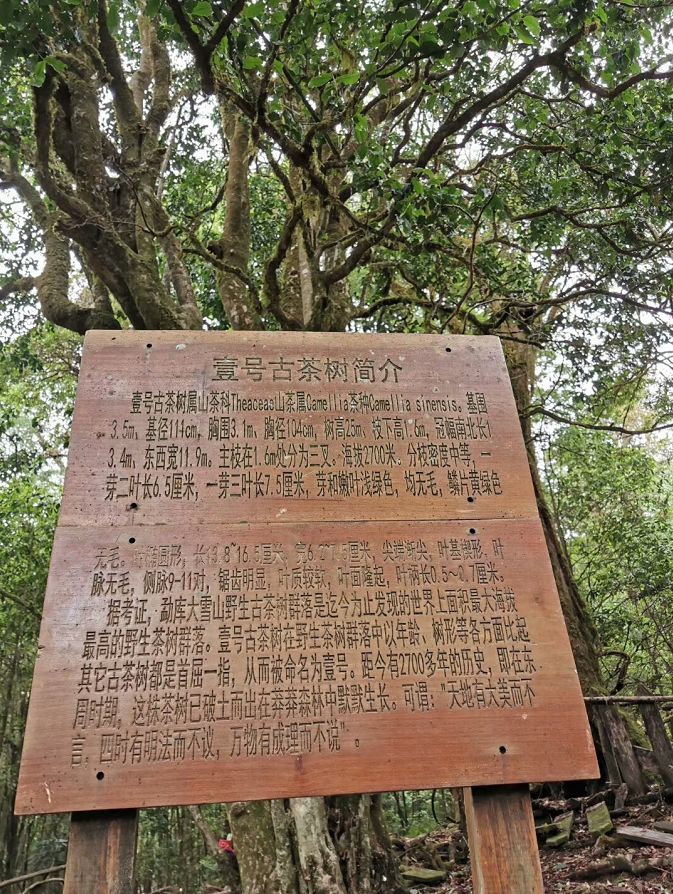 壹号古茶树简介
壹号古茶树属山茶科Theaceas山茶属Camellia茶种Camellia sinensis。基围
3.5m，基径111cm，胸围3.1m，胸径104cm，树高25m，枝下高1.6m，冠幅南北长1
3.4m，东西宽11.9m。主枝在1.6m处分为三叉。海拔2700米。分枝密度中等，一
芽二叶长6.5厘米，一芽三叶长7.5厘米，芽和嫩叶浅绿色，均无毛，鳞片黄绿色
无毛。叶椭圆形，长13.8~16.5厘米，宽6.2~7.5厘米，尖端渐尖，叶基楔形，叶
脉无毛，侧脉9-11对，锯齿明显，叶质较软，叶面隆起，叶柄长0.5~0.7厘米。
据考证，勐库大雪山野生古茶树群落是迄今为止发现的世界上面积最大海拔
最高的野生茶树群落。壹号古茶树在野生茶树群落中以年龄、树形等各方面比起
其它古茶树都是首屈一指，从而被命名为壹号。距今有2700多年的历史，即在东
周时期，这株茶树已破土而出在莽莽森林中默默生长。可谓："天地有大美而不
言，四时有明法而不议，万物有成理而不说"。